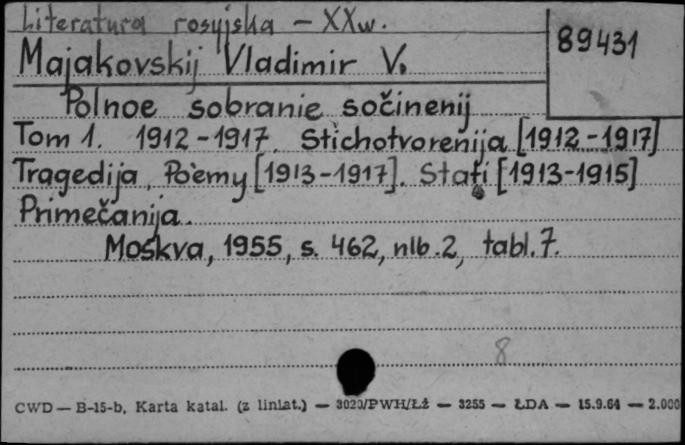 Literatura rosyjska - XXw.
89431
Majakovskij Vladimir V.
Polnoe sobranie sočinenij
Tom 1. 1912-1917. Stichotvorenija [1912-1917]
Tragedija. Poèmy [1913-1917]. Stat'i [1913-1915]
Primečanija.
Moskva, 1955, s. 462, nlb. 2, tabl. 7.
8
CWD — B-15-b, Karta katal. (z liniat.) — 3020/PWH/ŁŻ — 3255 — ŁDA — 15.9.64 — 2.000